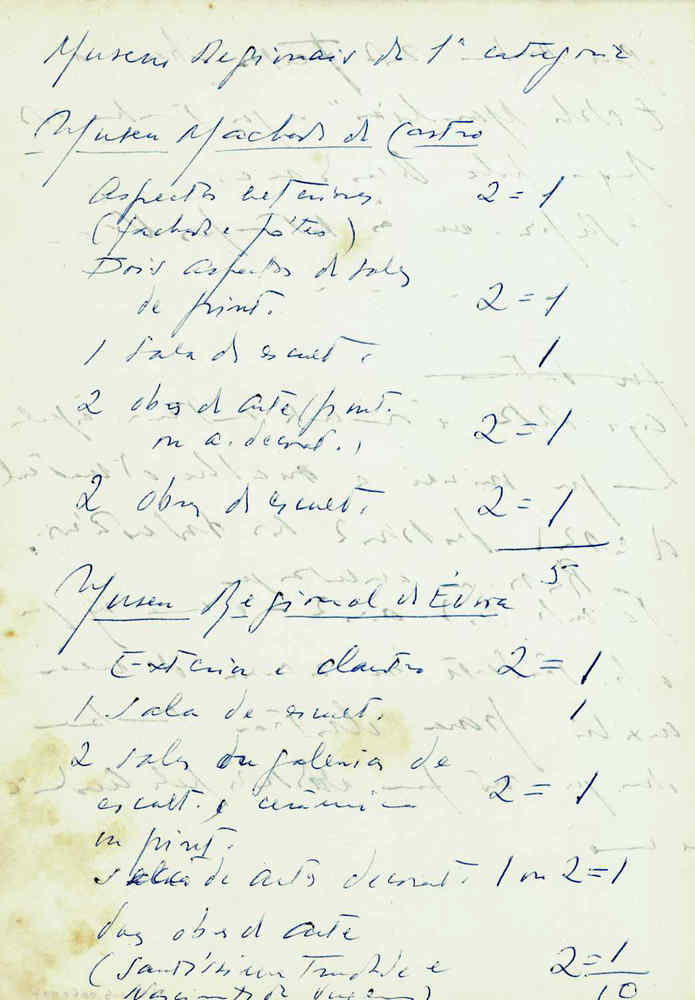 Museus Regionais de 1ª categoria
Museu Machado de Castro
Aspectos exteriores 2 = 1
(fachada e páteo)
Dois aspectos de salas
de pint. 2 = 1
1 sala de escult. 1
2 obras d'arte (pint.
ou a. decorat.) 2 = 1
2 obras de escult. 2 = 1
5
Museu Regional de Évora
Exterior e claustro 2 = 1
1 sala de escult. 1
2 salas ou galerias de
escult. e cerâmica 2 = 1
ou pint.
sala de artes decorat. 1 ou 2 = 1
duas obras d'arte
(Santíssima Trindade e 2 = 1
Nascimento da Virgem) 10